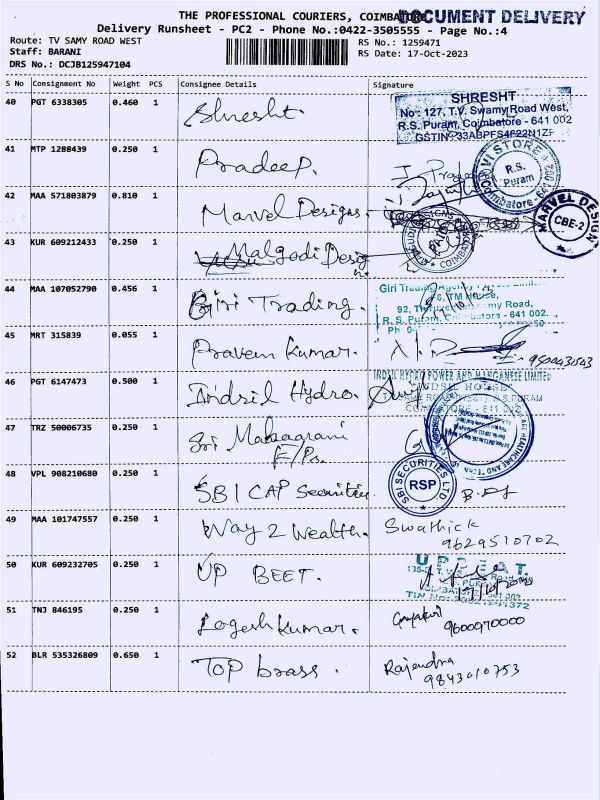 THE PROFESSIONAL COURIERS, COIMBATORE
DOCUMENT DELIVERY
Delivery Runsheet - PC2 - Phone No.:0422-3505555 - Page No.:4
Route: TV SAMY ROAD WEST
RS No.: 1259471
Staff: BARANI
RS Date: 17-Oct-2023
DRS No.: DCJB125947104
S No Consignment No Weight PCS Consignee Details Signature
40 PGT 6338305 0.460 1 Shresht.
SHRESHT
No: 127, T.V. Swamy Road West,
R.S. Puram, Coimbatore - 641 002
GSTIN:33ABPFS4622N1ZF
41 MTP 1288439 0.250 1 Pradeep.
VI STORE
R.S. Puram
Coimbatore - 641 002
42 MAA 571803879 0.810 1 Marvel Designs.
MARVEL DESIGN
CBE-2
43 KUR 609212433 0.250 1 Malgodi Desig
COIMBATORE
44 MAA 107052790 0.456 1 Giri Trading.
Giri Trading Agency
TM House,
92, Road,
R. S. Puram, Coimbatore - 641 002.
45 MRT 315839 0.055 1 Praveen Kumar.
9500431543
46 PGT 6147473 0.500 1 Indsil Hydro.
INDSIL HYDRO POWER AND MANGANESE LIMITED
INDSIL HOUSE
R.S.PURAM
COIMBATORE - 641 002
47 TRZ 50006735 0.250 1 Sri Mahaagrani
48 VPL 908210680 0.250 1 SBI CAP Securities
SBI SECURITIES LTD
RSP
49 MAA 101747557 0.250 1 Way 2 Wealth.
Swathick
9629510702
50 KUR 609232705 0.250 1 UP BEET.
51 TNJ 846195 0.250 1 Logesh Kumar.
9600970000
52 BLR 535326809 0.650 1 Top brass.
Rajendra
9843010753